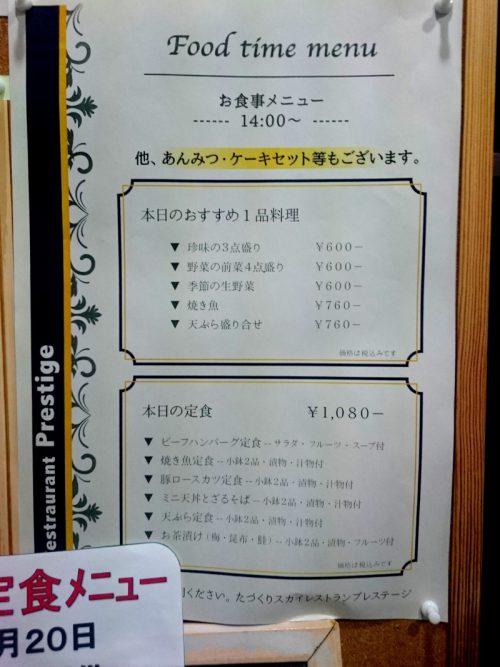 Food time menu
お食事メニュー
------ 14:00～ ------
他、あんみつ・ケーキセット等もございます。
本日のおすすめ１品料理
▼ 珍味の３点盛り ￥６００−
▼ 野菜の前菜４点盛り ￥６００−
▼ 季節の生野菜 ￥６００−
▼ 焼き魚 ￥７６０−
▼ 天ぷら盛り合せ ￥７６０−
価格は税込みです
本日の定食 ￥1,080−
▼ ビーフハンバーグ定食 -- サラダ・フルーツ・スープ付
▼ 焼き魚定食 -- 小鉢２品・漬物・汁物付
▼ 豚ロースカツ定食 -- 小鉢２品・漬物・汁物付
▼ ミニ天丼とざるそば -- 小鉢２品・漬物・汁物付
▼ 天ぷら定食 -- 小鉢２品・漬物・汁物付
▼ お茶漬け（梅・昆布・鮭）-- 小鉢２品・漬物・フルーツ付
価格は税込みです
ください。たづくりスカイレストランプレステージ
estraurant Prestige
定食メニュー
月２０日